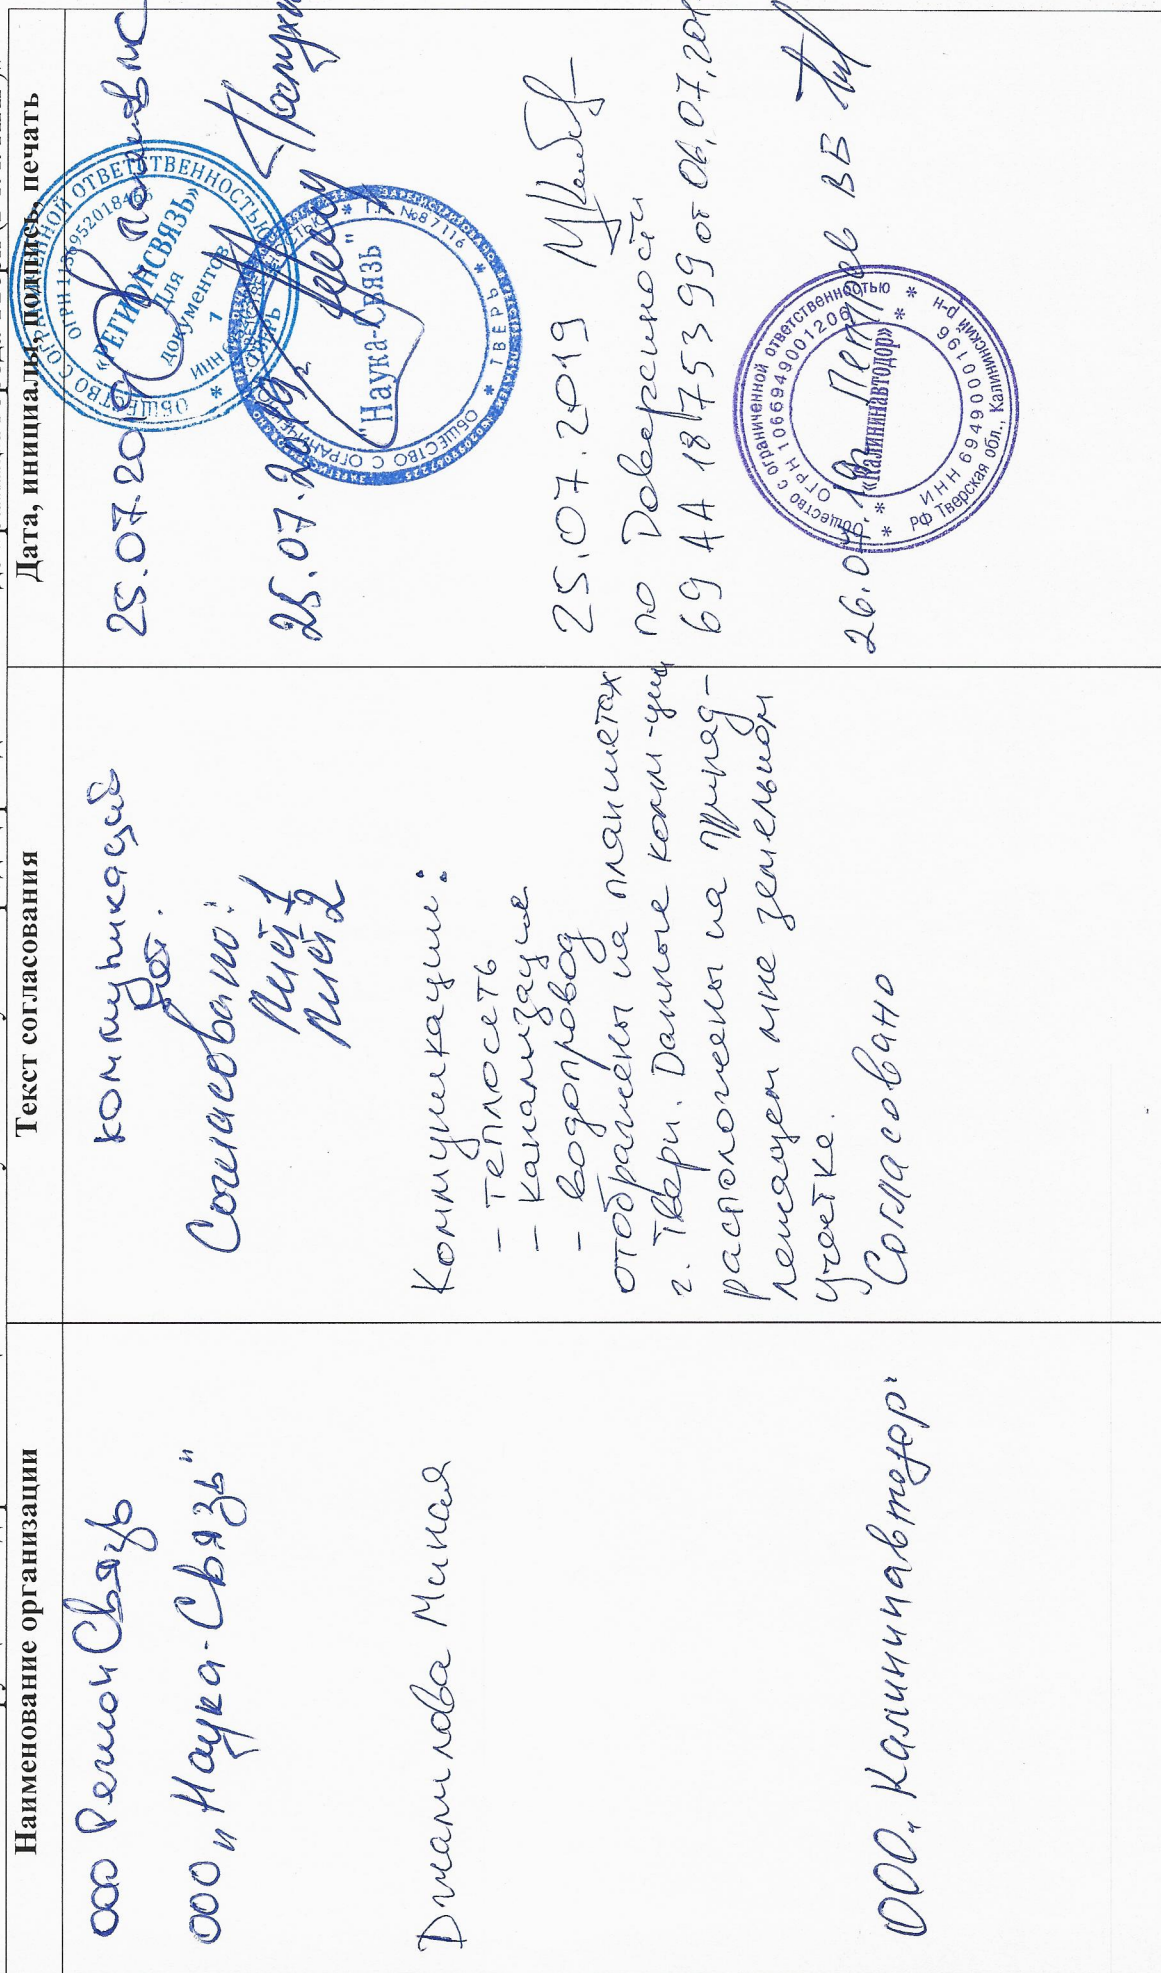 Наименование организации
Текст согласования
Дата, инициалы, подпись, печать
ООО РегионСвязь
коммуникаций
нет.
25.07.20
ОБЩЕСТВО С ОГРАНИЧЕННОЙ ОТВЕТСТВЕННОСТЬЮ
«РЕГИОНСВЯЗЬ»
Для
документов
7
ООО „Наука-Связь"
Согласовано!
Лист 1
Лист 2
25.07.2019
"Наука-Связь"
ОБЩЕСТВО С ОГРАНИЧЕННОЙ
* ТВЕРЬ *
№87116
Джамилова Миная
Коммуникации:
- теплосеть
- канализация
- водопровод
отображены на планшетах
г. Твери. Данные комм-ции
расположены на принад-
лежащем мне земельном
участке.
Согласовано
25.07.2019
по Доверенности
69 АА 1817539 99 от 06.07.201
ООО „Калининавтодор"
26.07.19г Петров ВВ
Общество с ограниченной ответственностью
* РФ Тверская обл., Калининский р-н *
ОГРН 1066949001206
ИНН 6949000196
«Калининавтодор»